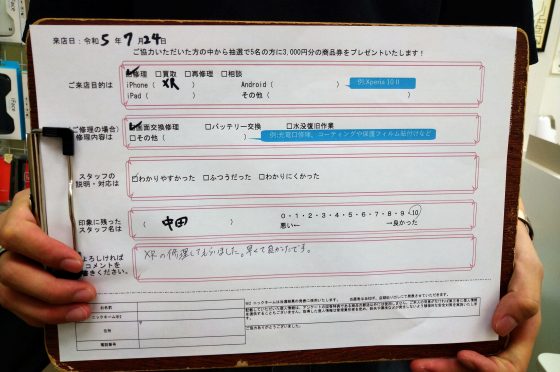 来店日：令和5年7月24日
ご協力いただいた方の中から抽選で5名の方に3,000円分の商品券をプレゼントいたします！
ご来店目的は
☑修理 □買取 □再修理 □相談
iPhone（ XR ） Android（ ） 例:Xperia 10 II
iPad（ ） その他（ ）
ご修理の場合）
修理内容は
☑画面交換修理 □バッテリー交換 □水没復旧作業
□その他（ ） 例:充電口修理、コーティングや保護フィルム貼付けなど
スタッフの
説明・対応は
□わかりやすかった □ふつうだった □わかりにくかった
印象に残った
スタッフ名は
（ 中田 ）
0・1・2・3・4・5・6・7・8・9・10
悪い← →良かった
よろしければ
コメントを
書きください。
XRの修理してもらいました。早くて良かったです。
お名前
ニックネーム※2
住所
〒
電話番号
ご協力ありがとうございました。